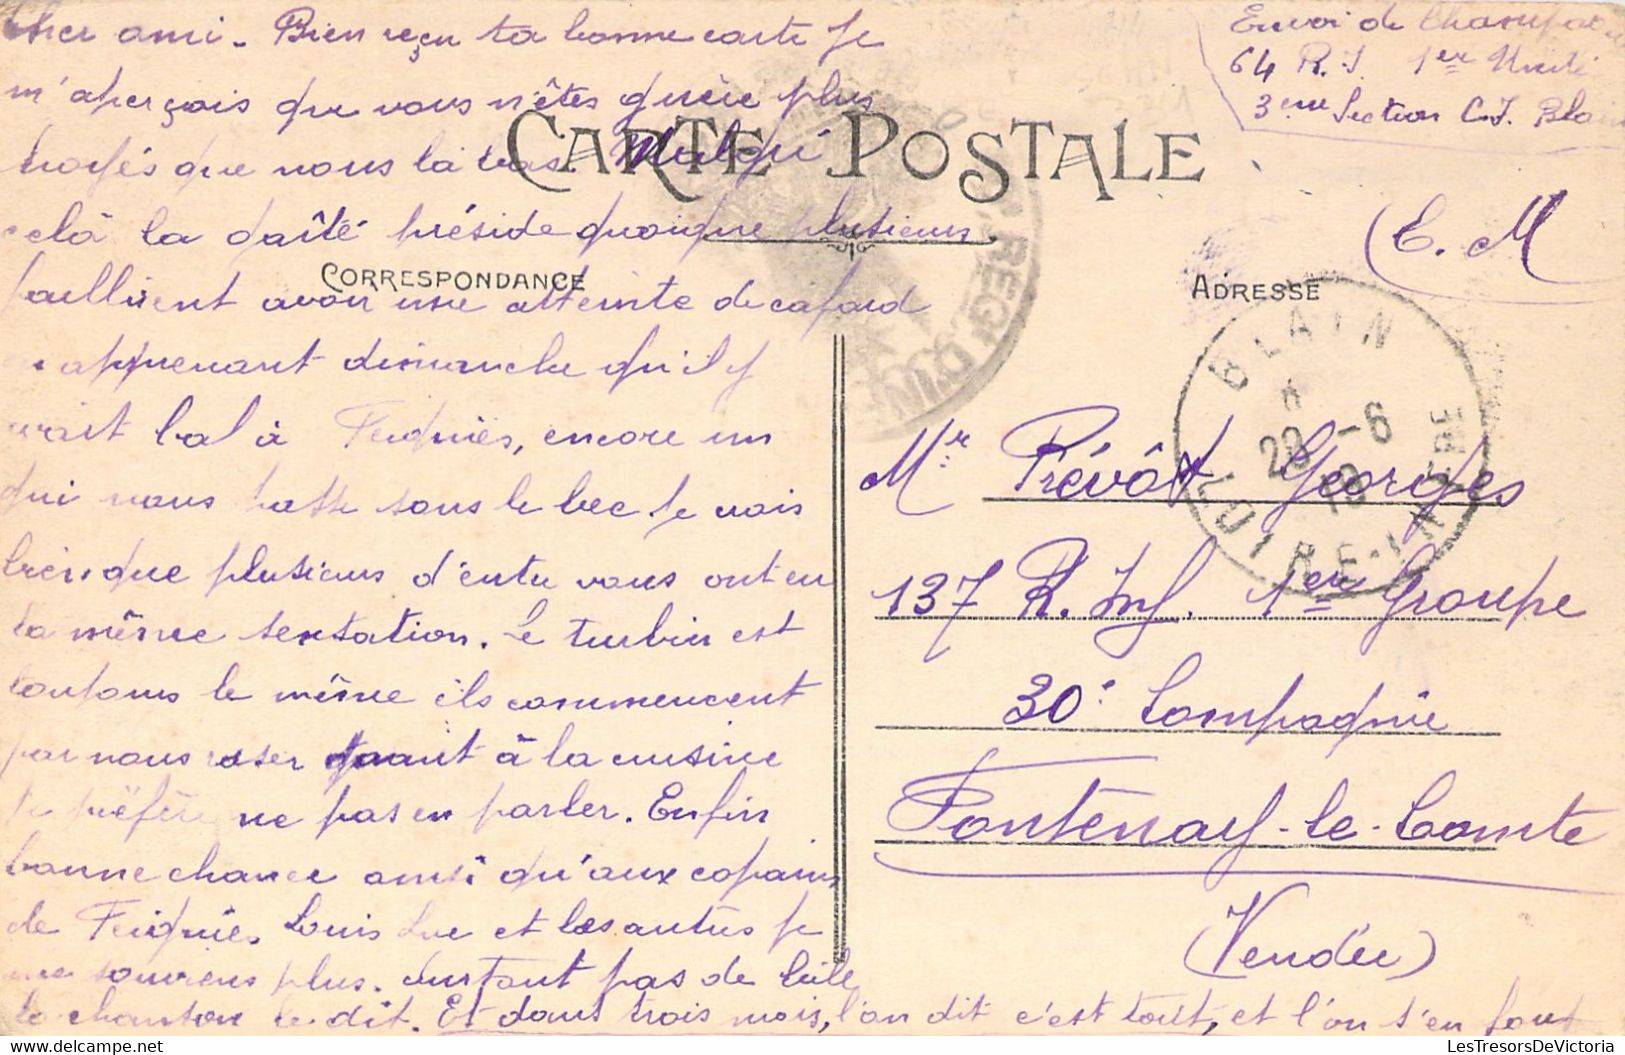 Cher ami - Bien reçu ta bonne carte je
m'aperçois que vous n'êtes guère plus
que nous là bas. Malgré
celà la gaîté préside quoique plusieurs
faillirent avoir une atteinte de cafard
apprenant dimanche qu'il y
avait bal à Feignies, encore un
qui nous passe sous le bec je vois
bien que plusieurs d'entre vous ont eu
la même sensation. Le turbin est
toujours le même ils commencent
par nous raser quant à la cuisine
je préfère ne pas en parler. Enfin
bonne chance ainsi qu'aux copains
de Feignies, Louis Luc et les autres je
me souviens plus. surtout pas de bile
la chanson le dit. Et dans trois mois, l'on dit c'est tout, et l'on s'en fout
CARTE POSTALE
CORRESPONDANCE
ADRESSE
Envoi de
64 R.I. 1er
3eme Section C.I. Blain
(E. M
BLAIN
28 -6
LOIRE-INFRE
RÉGT D'INF
Mr Prévôt Georges
137 R. Inf. 1er Groupe
30e Compagnie
Fontenay-le-Comte
(Vendée)
LesTresorsDeVictoria.delcampe.net
LesTresorsDeVictoria